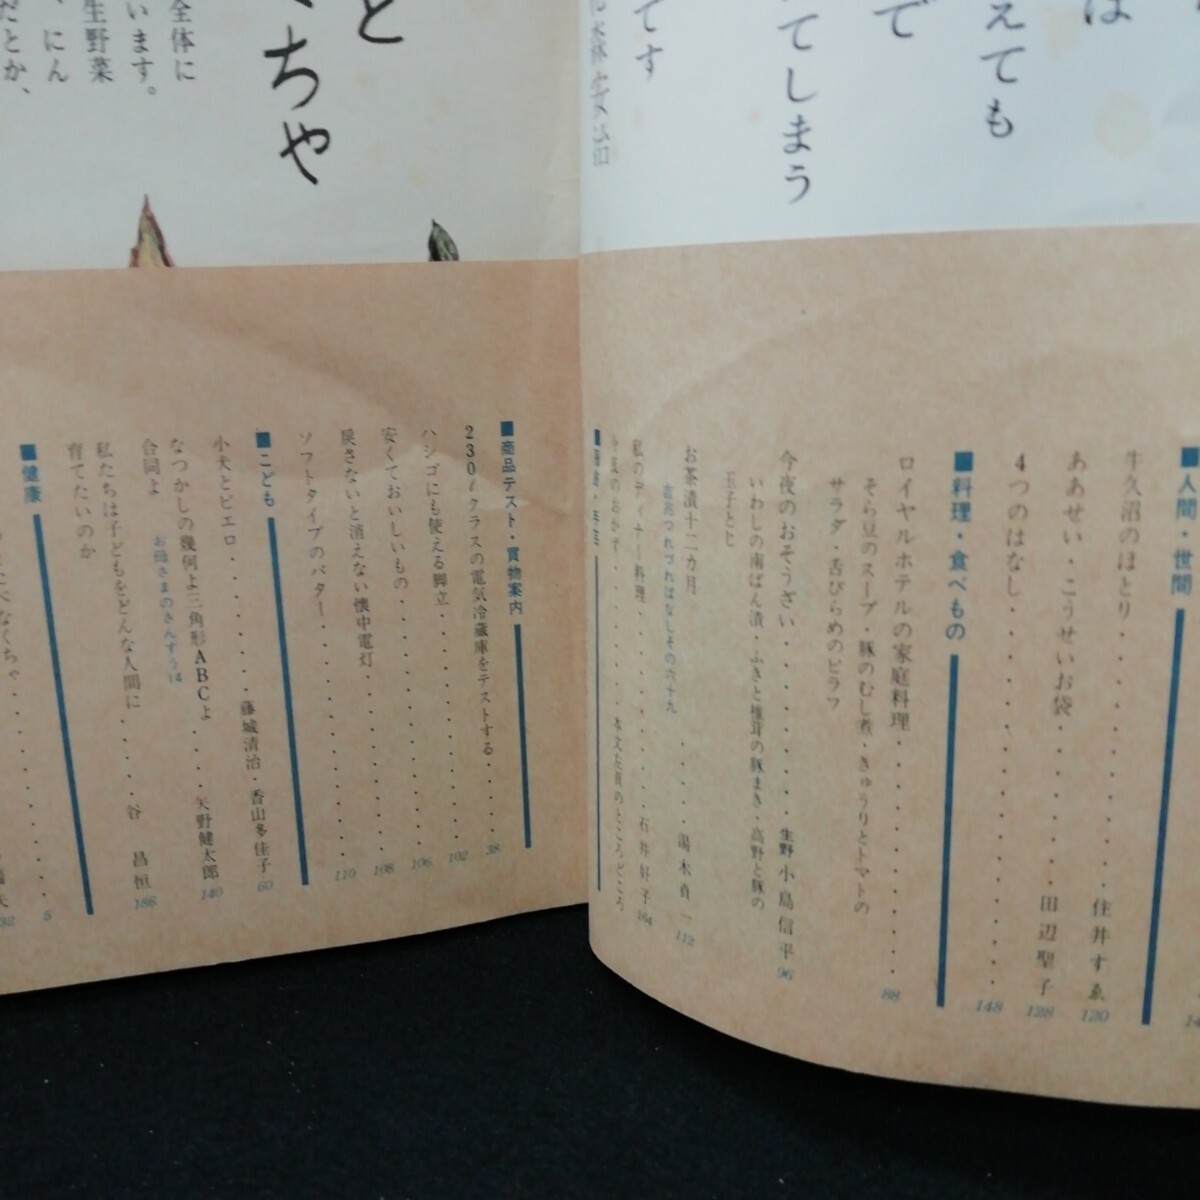 は
えても
で
てしまう
てす
■人間・世間
牛久沼のほとり・・・・・・・・・・住井すゑ 120
ああせい・こうせいお袋・・・・・・田辺聖子 128
4つのはなし・・・・・・・・・・148
■料理・食べもの
ロイヤルホテルの家庭料理・・・・・・・・88
そら豆のスープ・豚のむし煮・きゅうりとトマトの
サラダ・舌びらめのピラフ
今夜のおそうざい・・・・・・・・生野 小島信平 96
いわしの南ばん漬・ふきと椎茸の豚まき・高野と豚の
玉子とじ
お茶漬十二カ月・・・・湯木貞一 112
吉兆つれづればなしその六十九
私のディナー料理・・・・・・・・石井好子 164
今夜のおかず・・・・・・・・本文左頁のところどころ
と
ちゃ
全体に
います。
生野菜
、にん
だとか、
■商品テスト・買物案内
230ℓクラスの電気冷蔵庫をテストする・・・・38
ハシゴにも使える脚立・・・・・・・・・102
安くておいしいもの・・・・・・・・・106
戻さないと消えない懐中電灯・・・・・・・・108
ソフトタイプのバター・・・・・・・・110
■こども
小犬とピエロ・・・・・・藤城清治・香山多佳子 60
なつかしの幾何よ三角形ABCよ・・・・矢野健太郎 140
合同よ
お母さまのさんすう14
私たちは子どもをどんな人間に・・・・・谷 昌恒 186
育てたいのか
■健康
べなくちゃ・・・・・・・・5
32